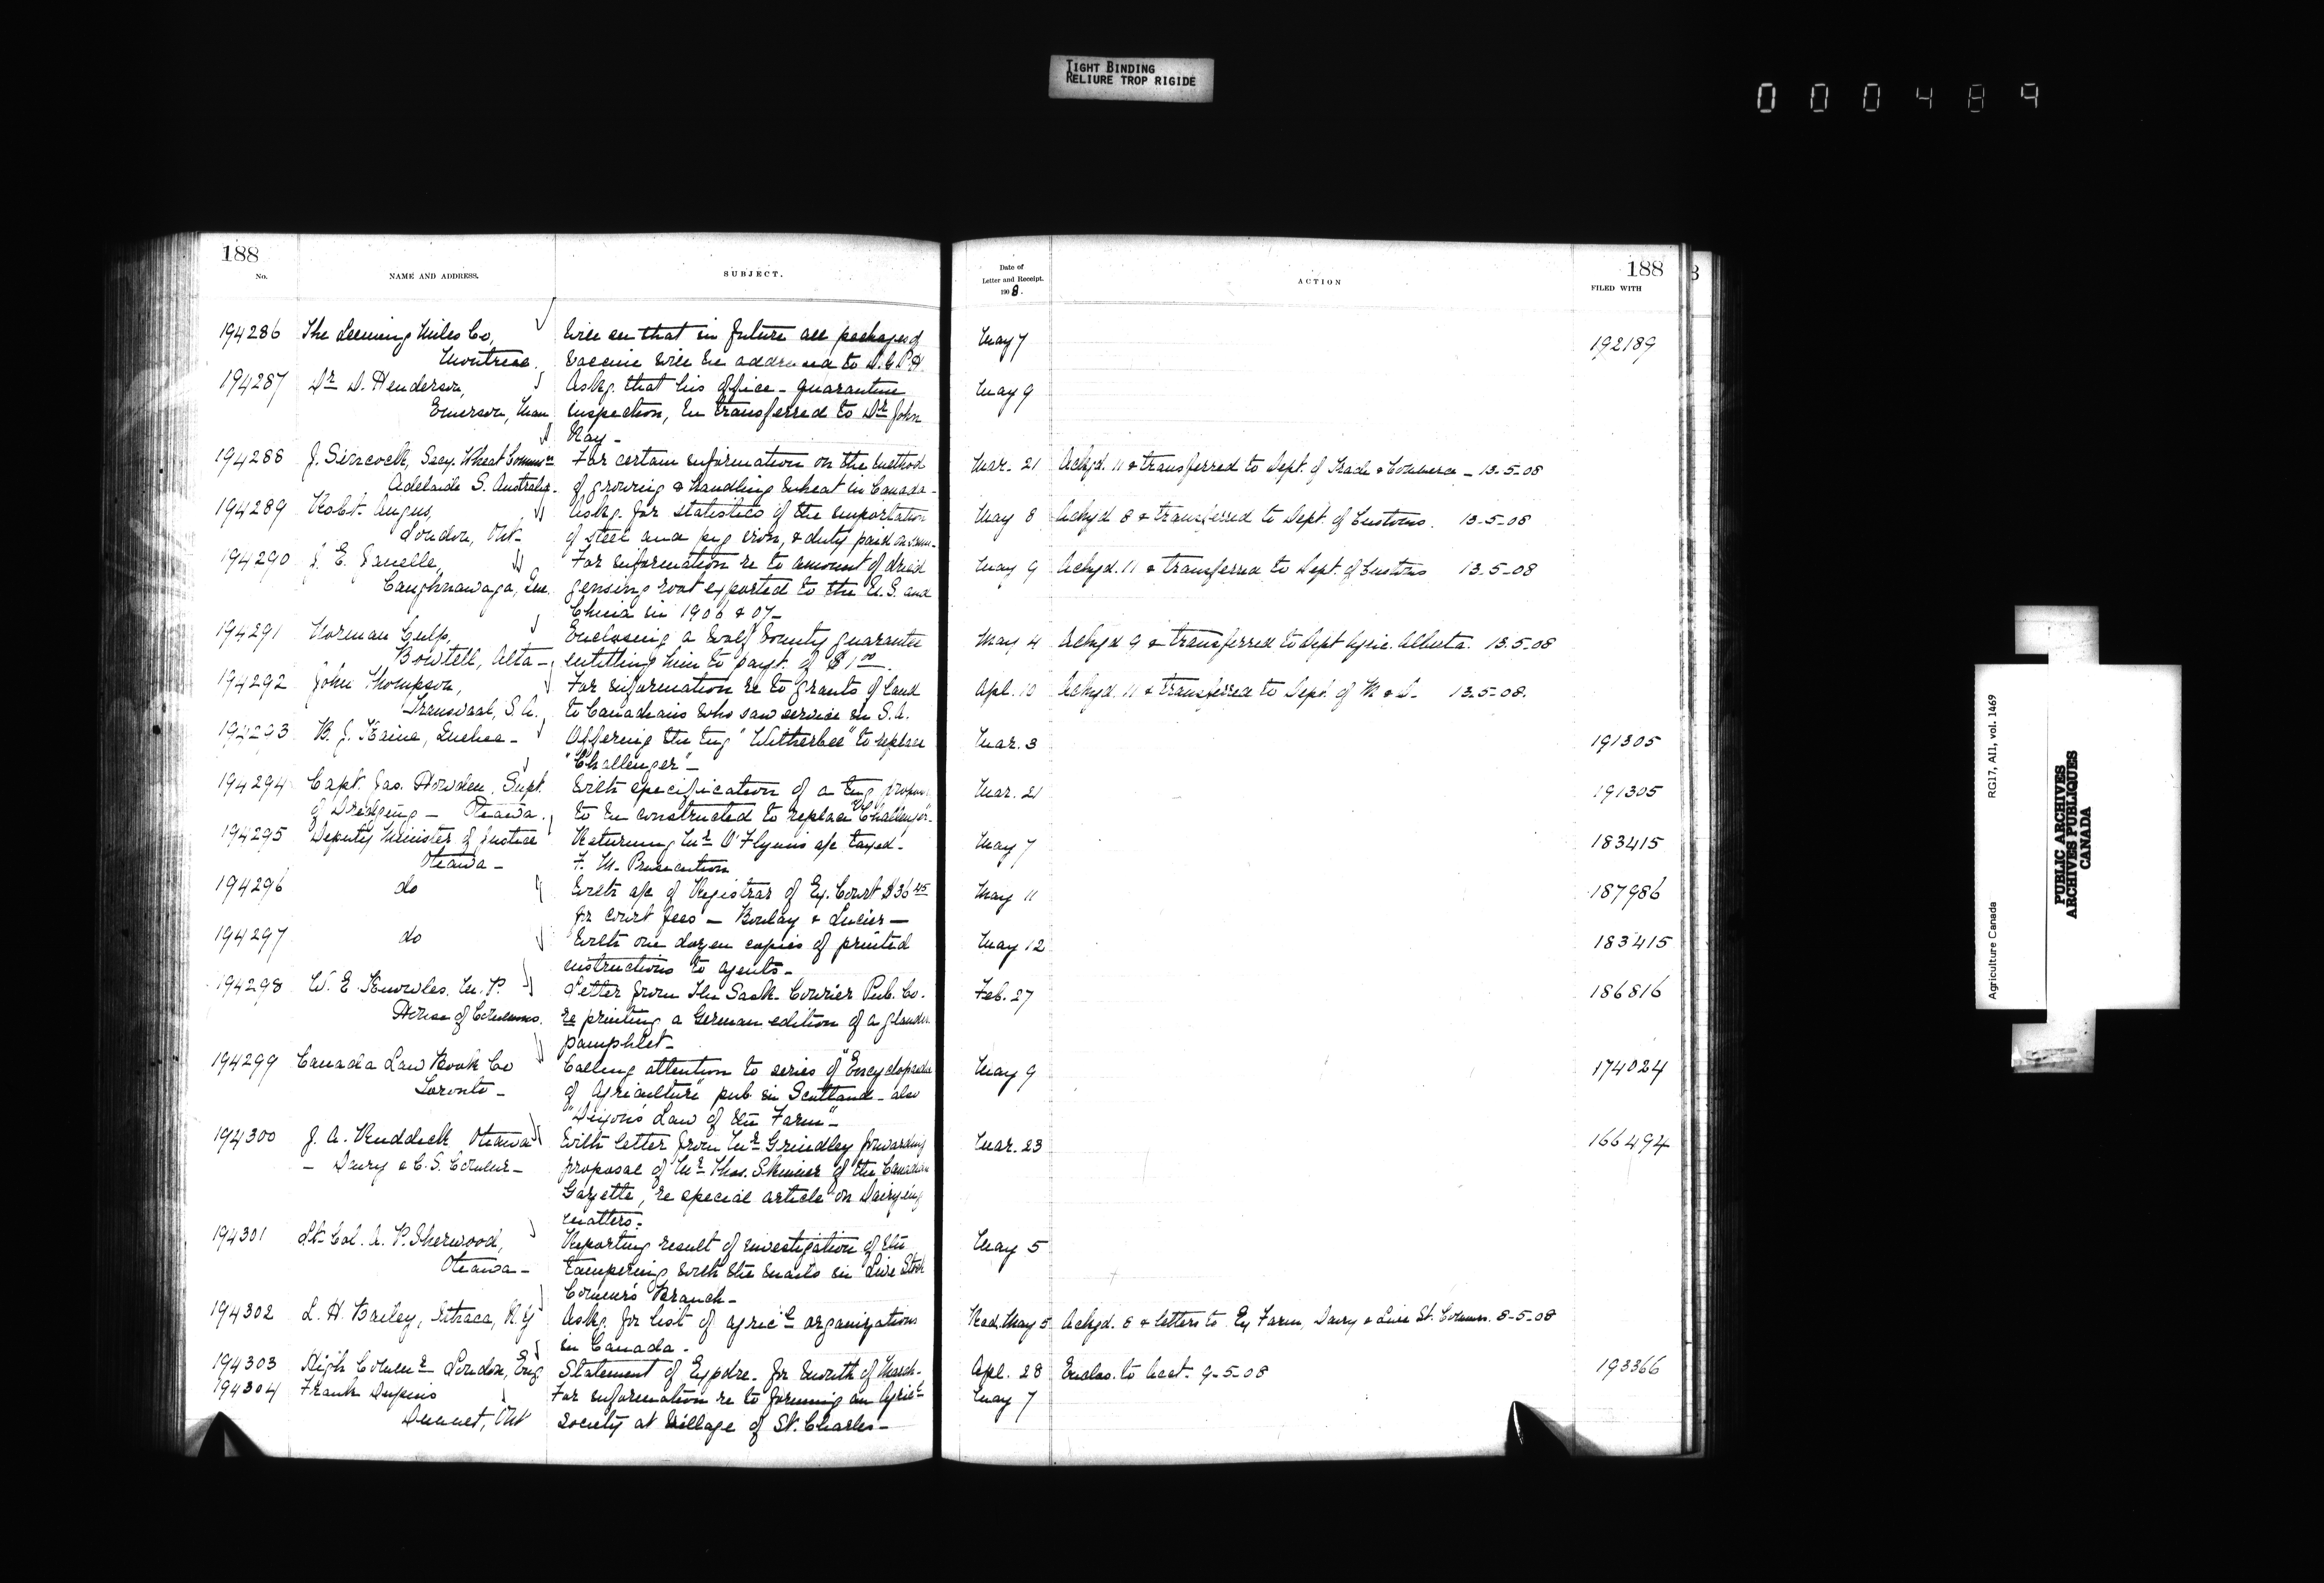 TIGHT BINDING
RELIURE TROP RIGIDE
000489
188
No.
NAME AND ADDRESS.
SUBJECT.
194286 The Leeming Miles Co, Will see that in future all packages of
Montreal. vaccine will be addressed to D.G.P.H.
194287 Dr. D. Henderson, Askg. that his office - quarantine
Emerson, Man inspection, be transferred to Dr. John
Ray -
194288 J. Sincock, Secy. Wheat Commn. For certain information on the method
Adelaide S. Australia. of growing & handling wheat in Canada -
194289 Robt. Angus, Askg. for statistics of the importation
London, Ont. of steel and pig iron, & duty paid on same.
194290 J. E. Janelle, For information re to amount of dried
Caughnawaga, Que. gensing root exported to the U.S. and
China in 1906 & 07 -
194291 Norman Culp, Enclosing a wolf bounty guarantee
Bowtell, Alta - entitling him to payt. of $1.00.
194292 John Thompson, For information re to grants of land
Transvaal, S.A. to Canadians who saw service in S.A.
194293 B. J. Kaine, Quebec - Offering the tug "Witherbee" to replace
"Challenger" -
194294 Capt. Jas. Howden, Supt. With specification of a tug
of Dredging - Ottawa. to be constructed to replace "Challenger".
194295 Deputy Minister of Justice Returning Mr. O'Flynn's a/c taxed -
Ottawa - F. M. Prosecution
194296 do With a/c of Registrar of Ex. Court $36.45
for court fees - Boulay & Lucier -
194297 do With one dozen copies of printed
instructions to agents -
194298 W. E. Knowles, M.P. Letter from the Sask. Courier Pub. Co.
House of Commons. re printing a German edition of a glanders
pamphlet -
194299 Canada Law Book Co Calling attention to series of "Encyclopædia
Toronto - of Agriculture" pub. in Scotland - also
"Dixon's Law of the Farm" -
194300 J. A. Ruddick Ottawa With letter from Mr. Grindley forwarding
- Dairy & C.S. Commr - proposal of Mr. Thos. Skinner of the Canadian
Gazette, re special article on Dairying
matters.
194301 Lt. Col. A. P. Sherwood, Reporting result of investigation of the
Ottawa - tampering with the mails in Live Stock
Commr's Branch -
194302 L. H. Bailey, Ithaca, N.Y. Askg. for list of agricl. organizations
in Canada -
194303 High Commr. London, Eng Statement of Expdre. for month of March.
194304 Frank Dupuis For information re to forming an Agricl.
Ont society at village of St. Charles -
Date of
Letter and Receipt.
1908.
ACTION
188
FILED WITH
May 7 192189
May 9
Mar. 21 Ackgd. 11 & transferred to Dept. of Trade & Commerce - 13-5-08
May 8 Ackgd 8 & transferred to Dept. of Customs. 13-5-08
May 9 Ackgd. 11 & transferred to Dept. of Customs 13-5-08
May 4 Ackgd 9 & transferred to Dept Agric. Alberta. 13.5-08
Apl. 10 Ackgd. 11 & transferred to Dept. of M & D. 13-5-08.
Mar. 3 191305
Mar. 21 191305
May 7 183415
May 11 187986
May 12 183415
Feb. 27 186816
May 9 174024
Mar. 23 166494
May 5
Recd. May 5 Ackgd. 8 & letters to Ex Farm, Dairy & Live St. Commrs. 8-5-08
Apl. 28 Enclos. to Acct. 9-5-08 193366
May 7
Agriculture Canada
RG17, AII, vol. 1469
PUBLIC ARCHIVES
ARCHIVES PUBLIQUES
CANADA